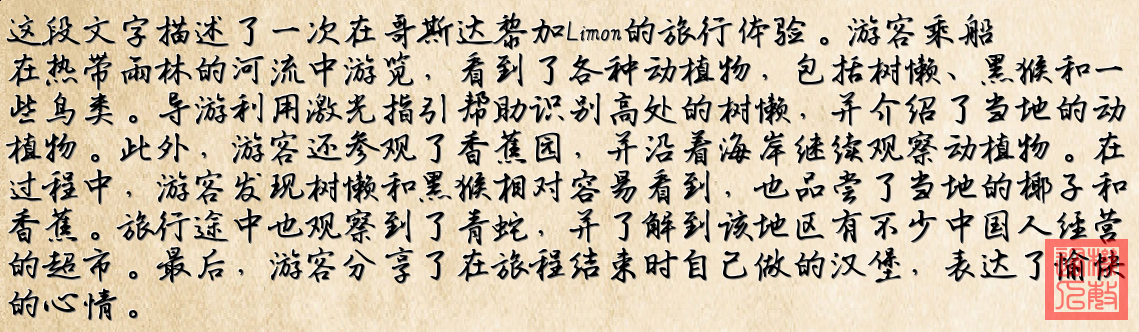 这段文字描述了一次在哥斯达黎加Limon的旅行体验。游客乘船
在热带雨林的河流中游览，看到了各种动植物，包括树懒、黑猴和一
些鸟类。导游利用激光指引帮助识别高处的树懒，并介绍了当地的动
植物。此外，游客还参观了香蕉园，并沿着海岸继续观察动植物。在
过程中，游客发现树懒和黑猴相对容易看到，也品尝了当地的椰子和
香蕉。旅行途中也观察到了青蛇，并了解到该地区有不少中国人经营
的超市。最后，游客分享了在旅程结束时自己做的汉堡，表达了愉快
的心情。